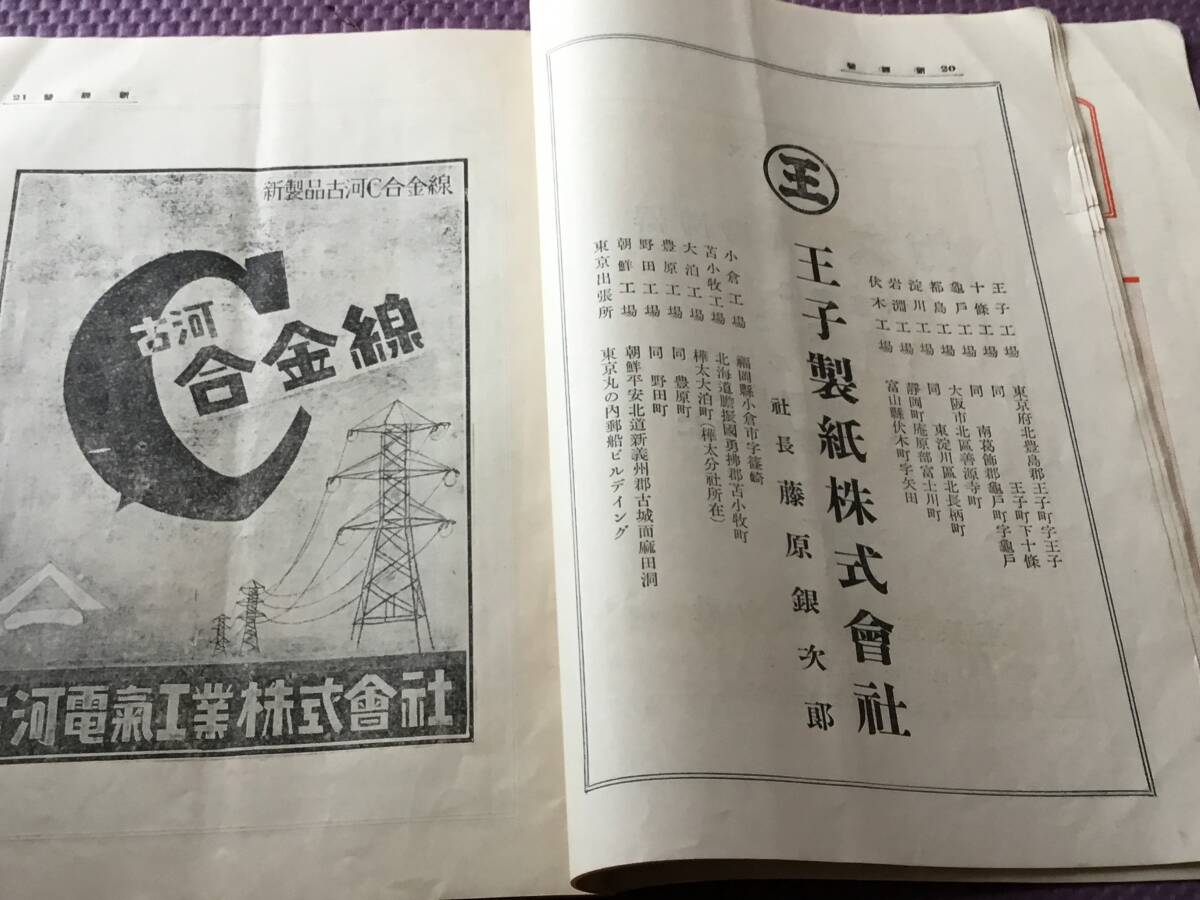 20
王
王子工場 東京府北豊島郡王子町字王子
十條工場 同 王子町下十條
龜戸工場 同 南葛飾郡龜戸町字龜戸
都島工場 大阪市北區善源寺町
淀川工場 同 東淀川區北長柄町
岩淵工場 靜岡縣庵原郡富士川町
伏木工場 富山縣伏木町字矢田
王子製紙株式會社
社長 藤原銀次郎
小倉工場 福岡縣小倉市字篠崎
苫小牧工場 北海道膽振國勇拂郡苫小牧町
大泊工場 樺太大泊町(樺太分社所在)
豊原工場 同 豊原町
野田工場 同 野田町
朝鮮工場 朝鮮平安北道新義州郡古城面麻田洞
東京出張所 東京丸の内郵船ビルデイング
21
新製品古河C合金線
C
古河
合金線
古河電氣工業株式會社